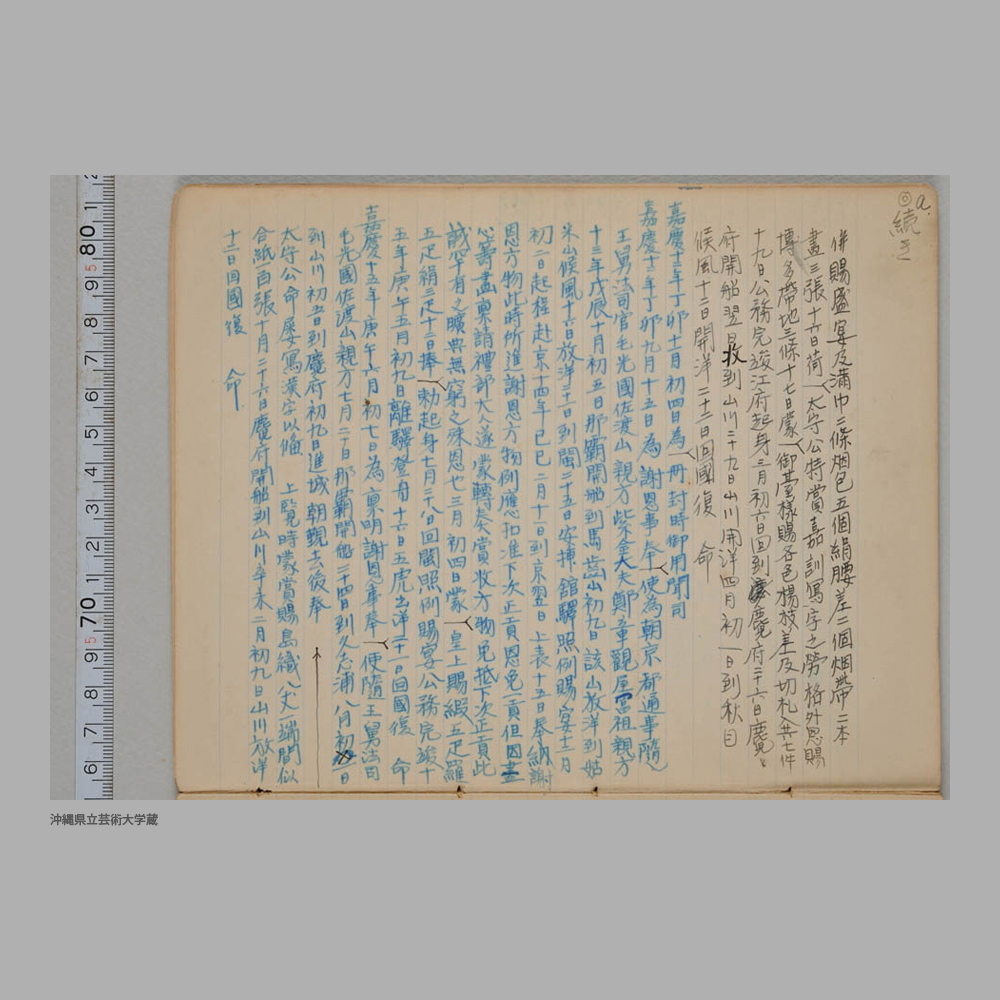 a.
◎続き
併賜盛宴及満巾二條烟包五個絹腰差二個烟帶二本
畫三張十六日荷 太守公特賞嘉訓寫字之勞格外恩賜
博多帶地三條十七日蒙 御臺様賜各色楊枝差及切札入共七件
十九日公務完竣江府起身三月初六日回到麑府二十六日麑
府開船翌日收到山川二十九日山川開洋四月初一日到秋目
候風十二日開洋二十二日回國復 命
嘉慶十二年丁卯十一月初四日為 冊封時御用聞司
嘉慶十二年丁卯九月十五日為 謝恩事奉 使為朝京都通事隨
王舅法司官毛光國佐渡山親方紫金大夫鄭章觀屋富祖親方
十三年戊辰十月初五日那霸開船到馬齒山初九日該山放洋到姑
米山候風十六日放洋二十一日到閩二十五日安挿舘驛照例賜宴十二月
初二日起程赴京十四年己巳二月十一日到京翌日上表十五日奉納謝
恩方物此時所進謝恩方物例應扣准下次正貢恩免一貢但因
心籌畫稟請禮部大人遂蒙轉奏賞收方物免抵下次正貢此
誠罕有之曠典無窮之殊恩也三月初四日蒙 皇上賜緞五疋羅
五疋絹三疋十日捧 勅起身七月二十八日回閩照例賜宴公務完竣十
五年庚午五月初九日離驛登舟十六日五虎出洋二十一日回國復 命
嘉慶十五年庚午六月初七日為稟明謝恩事奉 使隨王舅法司
毛光國佐渡山親方七月二十日那霸開船二十四日到久志浦八月初一日
到山川初五日到麑府初九日進城朝覲去後奉
太守公命屡寫漢字以備 上覽時蒙賞賜島織八丈一端間似
合紙百張十月二十六日麑府開船到山川辛未二月初九日山川放洋
十二日回國復 命
沖縄県立芸術大学蔵